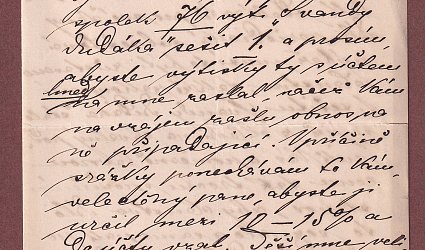 spolek 76 výt. „Švandy
dudáka" sešit 1. a prosím,
abyste výtisky ty s účtem
ihned na mne zaslal, načež Vám
na vzájem zašlu obnos na
ně připadající. V příčině
srážky ponechávám to Vám,
velectěný pane, abyste ji
určil mezi 10–15% a
Těší mne vel